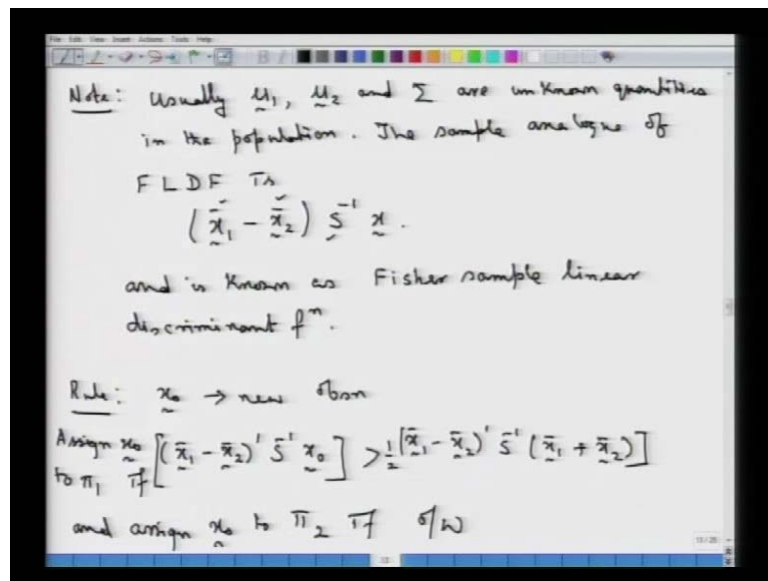 File Edit View Insert Actions Tools Help
Note: Usually μ₁, μ₂ and Σ are unknown quantities
in the population. The sample analogue of
FLDF is
(x̄₁ - x̄₂) S⁻¹ x.
and is known as Fisher sample linear
discriminant fⁿ.
Rule: x₀ → new obsn
Assign x₀ [(x̄₁ - x̄₂)' S⁻¹ x₀] > ½ [(x̄₁ - x̄₂)' S⁻¹ (x̄₁ + x̄₂)]
to π₁ if
and assign x₀ to π₂ if o/w